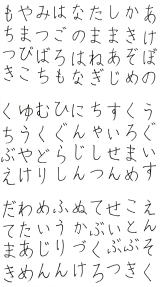 あけぼの
かきぞめ
しまあじ
たまねぎ
なのはな
はごろも
みつばち
やまびこ
もちつき
うぐいす
くろまめ
すいせん
ちゃしつ
にんじん
ひぐらし
むくどり
ゆうやけ
くちぶえ
えんそく
せいぶつ
てぶくろ
ぬかづけ
ふうりん
めいじん
わたあめ
だてまき